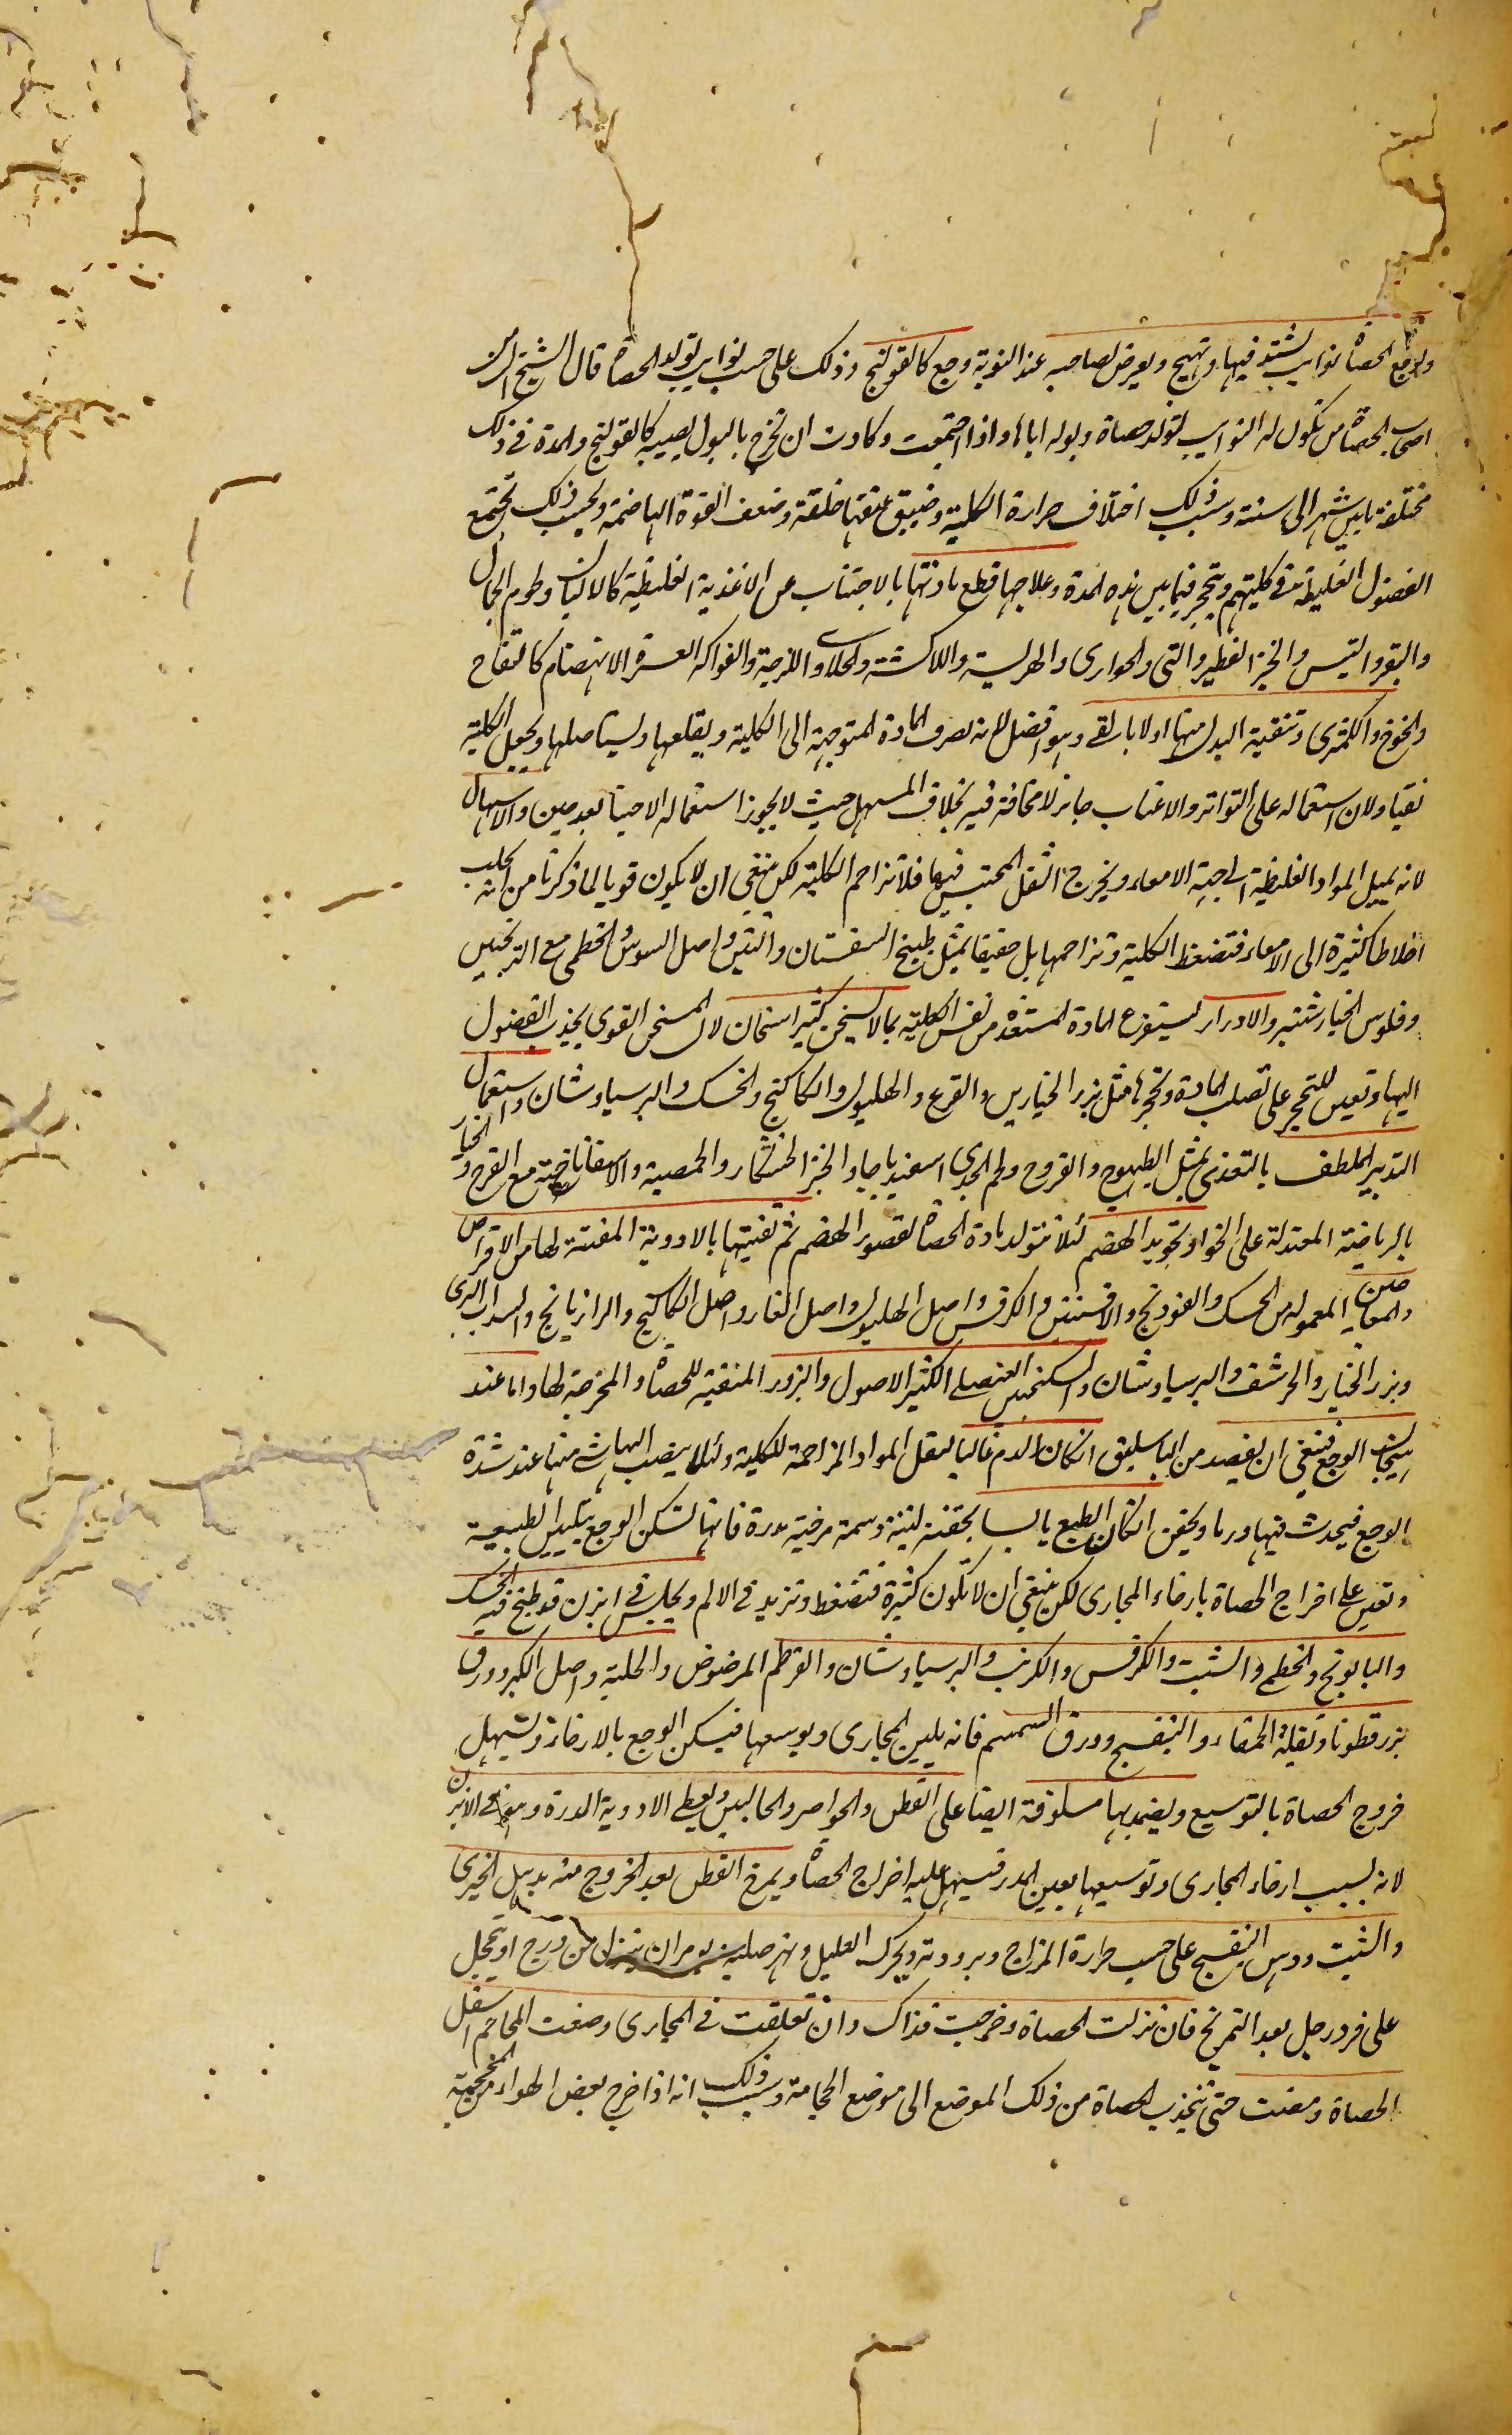 ولوجع الحصاة نوايب يشتد فيها ويهيج ويعرض لصاحبه عند النوبة وجع كالقولنج وذلك على حسب نوايب تولد الحصاة قال الشيخ ان من
اصحاب الحصاة من تكون له النوايب لتولد حصاة وبوله اياها واذا اجتمعت وكادت ان تخرج بالبول يصيبه كالقولنج والمدة في ذلك
مختلفة ما بين شهر الى سنة وسبب ذلك اختلاف حرارة الكلية وضيق عنقها خلقة وضعف القوة الهاضمة وبحسب ذلك تجتمع
الفضول الغليظة في كليتهم وتتحجر فيما بين هذه المدة وعلاجها قطع مادتها بالاجتناب عن الاغذية الغليظة كالالبان ولحوم الجمال
والبقر والتيس والخبز الفطير والنى والحوارى والهريسة واللاكشة والحلاوى اللزجة والفواكه العسرة الانهضام كالتفاح
والخوخ والكمثرى وتنقية البدن منها اولا بالقى وهو افضل لانه يصرف المادة المتوجهة الى الكلية ويقلعها ويستاصلها ويجعل الكلية
نقيا ولان استعماله على التواتر والاغباب جايز لا مخافة فيه بخلاف المسهل حيث لا يجوز استعماله الا حينا بعد حين والاسهال
لانه يميل المواد الغليظة الى جهة الامعاء ويخرج الثفل المحتبس فيها فلا تزاحم الكلية لكن ينبغى ان لا يكون قويا لما ذكرنا من انه يجلب
اخلاطا كثيرة الى الامعاء فتضغط الكلية وتزاحمها بل خفيفا بمثل طبيخ السفستان والتين واصل السوس والخطمى مع الترنجبين
وفلوس الخيارشنبر والادرار ليستفرغ المادة المستعدة من نفس الكلية بما لا يسخن كثير اسخان لان المسخن القوى يجذب الفضول
اليها وتعين للتحجر على تصلب المادة وتحجرها مثل بزر الخيارين والقرع والهليون والكاكنج والخسك والبرسياوشان واستعمال
التدبير الملطف بالتغذى بمثل الطيهوج والفروج ولحم الجدى اسفيدباجا والخبز الخشكار والحمصية والاسفاناخية مع القرع والخيار
بالرياضة المعتدلة على الخوا وتجويد الهضم لئلا تتولد مادة الحصاة لقصور الهضم ثم تفتيتها بالادوية المفتتة لها من الاقراص
والمعاجين المعمولة من الخسك والفودنج والافسنتين والكرفس واصل الهليون واصل الغار واصل الكاكنج والرازيانج والسداب البرى
وبزر الخيار والحرشف والبرسياوشان والسكنجبين العنصلى الكثير الاصول والبزور المنقية للحصاة والمخرجة لها واما عند
هيجان الوجع فينبغى ان يفصد من الباسليق ان كان الدم غالبا ليقل المواد المزاحمة للكلية ولئلا ينصب اليها شى منها عند شدة
الوجع فيحدث فيها ورما ويحقن ان كان الطبع يابسا بحقنة لينة دسمة مرخية مدرة فانها تسكن الوجع بتليين الطبيعة
وتعين على اخراج الحصاة بارخاء المجارى لكن ينبغى ان لا تكون كثيرة فتضغط وتزيد في الالم ويجلس في ابزن قد طبخ فيه الخسك
والبابونج والخطمى والشبت والكرفس والكرنب والبرسياوشان والقرطم المرضوض والحلبة واصل الكبر وورق
بزرقطونا وبقلة الحمقاء والبنفسج وورق السمسم فانه يلين المجارى ويوسعها فيسكن الوجع بالارخاء ويسهل
خروج الحصاة بالتوسيع ويضمد بها مسلوقة ايضا على القطن والخواصر والحالبين ويعطى الادوية المدرة وهو في الابزن
لانه بسبب ارخاء المجارى وتوسيعها يعين المدر فيسهل عليه اخراج الحصاة ويمرخ القطن بعد الخروج منه بدهن الخيرى
والشبت ودهن البنفسج على حسب حرارة المزاج وبرودته ويحرك العليل ويهز صلبه بمران ينزل من درج او يحجل
على فرد رجل بعد التمريخ فان نزلت الحصاة وخرجت فذاك وان تعلقت في المجارى وضعت المحاجم اسفل
الحصاة ومصت حتى تنجذب الحصاة من ذلك الموضع الى موضع الحجامة وسبب ذلك انه اذا خرج بعض الهواء من المحجمة